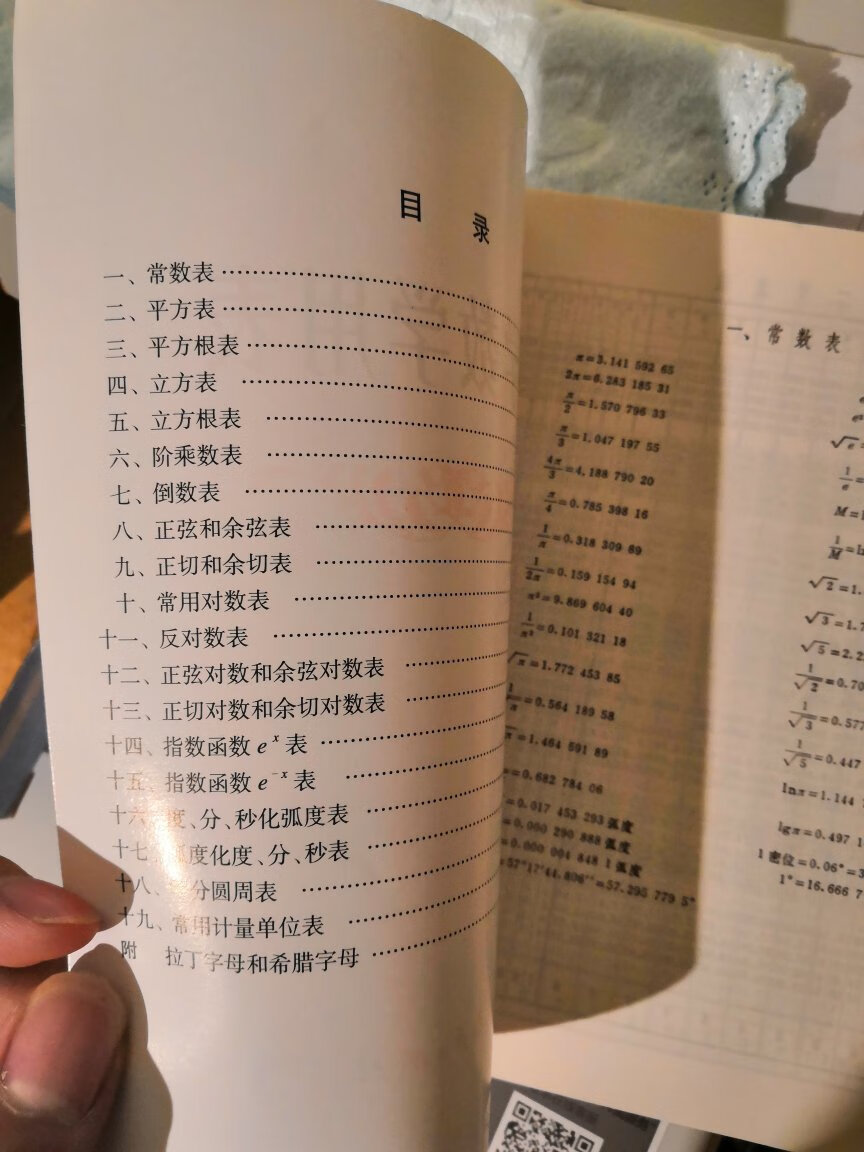 目 录
一、常数表
二、平方表
三、平方根表
四、立方表
五、立方根表
六、阶乘数表
七、倒数表
八、正弦和余弦表
九、正切和余切表
十、常用对数表
十一、反对数表
十二、正弦对数和余弦对数表
十三、正切对数和余切对数表
十四、指数函数 e^x 表
十五、指数函数 e^-x 表
十六、度、分、秒化弧度表
十七、弧度化度、分、秒表
十八、等分圆周表
十九、常用计量单位表
附 拉丁字母和希腊字母
一、常 数 表
π=3.141 592 65
2π=6.283 185 31
π/2=1.570 796 33
π/3=1.047 197 55
4π/3=4.188 790 20
π/4=0.785 398 16
1/π=0.318 309 89
1/2π=0.159 154 94
π²=9.869 604 40
1/π²=0.101 321 18
√π=1.772 453 85
=0.564 189 58
=1.464 591 89
=0.682 784 06
=0.017 453 293弧度
=0.000 290 888弧度
=0.000 004 848 1弧度
=57°17′44.806″=57.295 779 5°
√e=
1/e=
M=
1/M=
√2=1.
√3=1.7
√5=2.2
1/√2=0.70
1/√3=0.577
1/√5=0.447
lnπ=1.144
lgπ=0.497 1
1密位=0.06°=3
1°=16.666 7